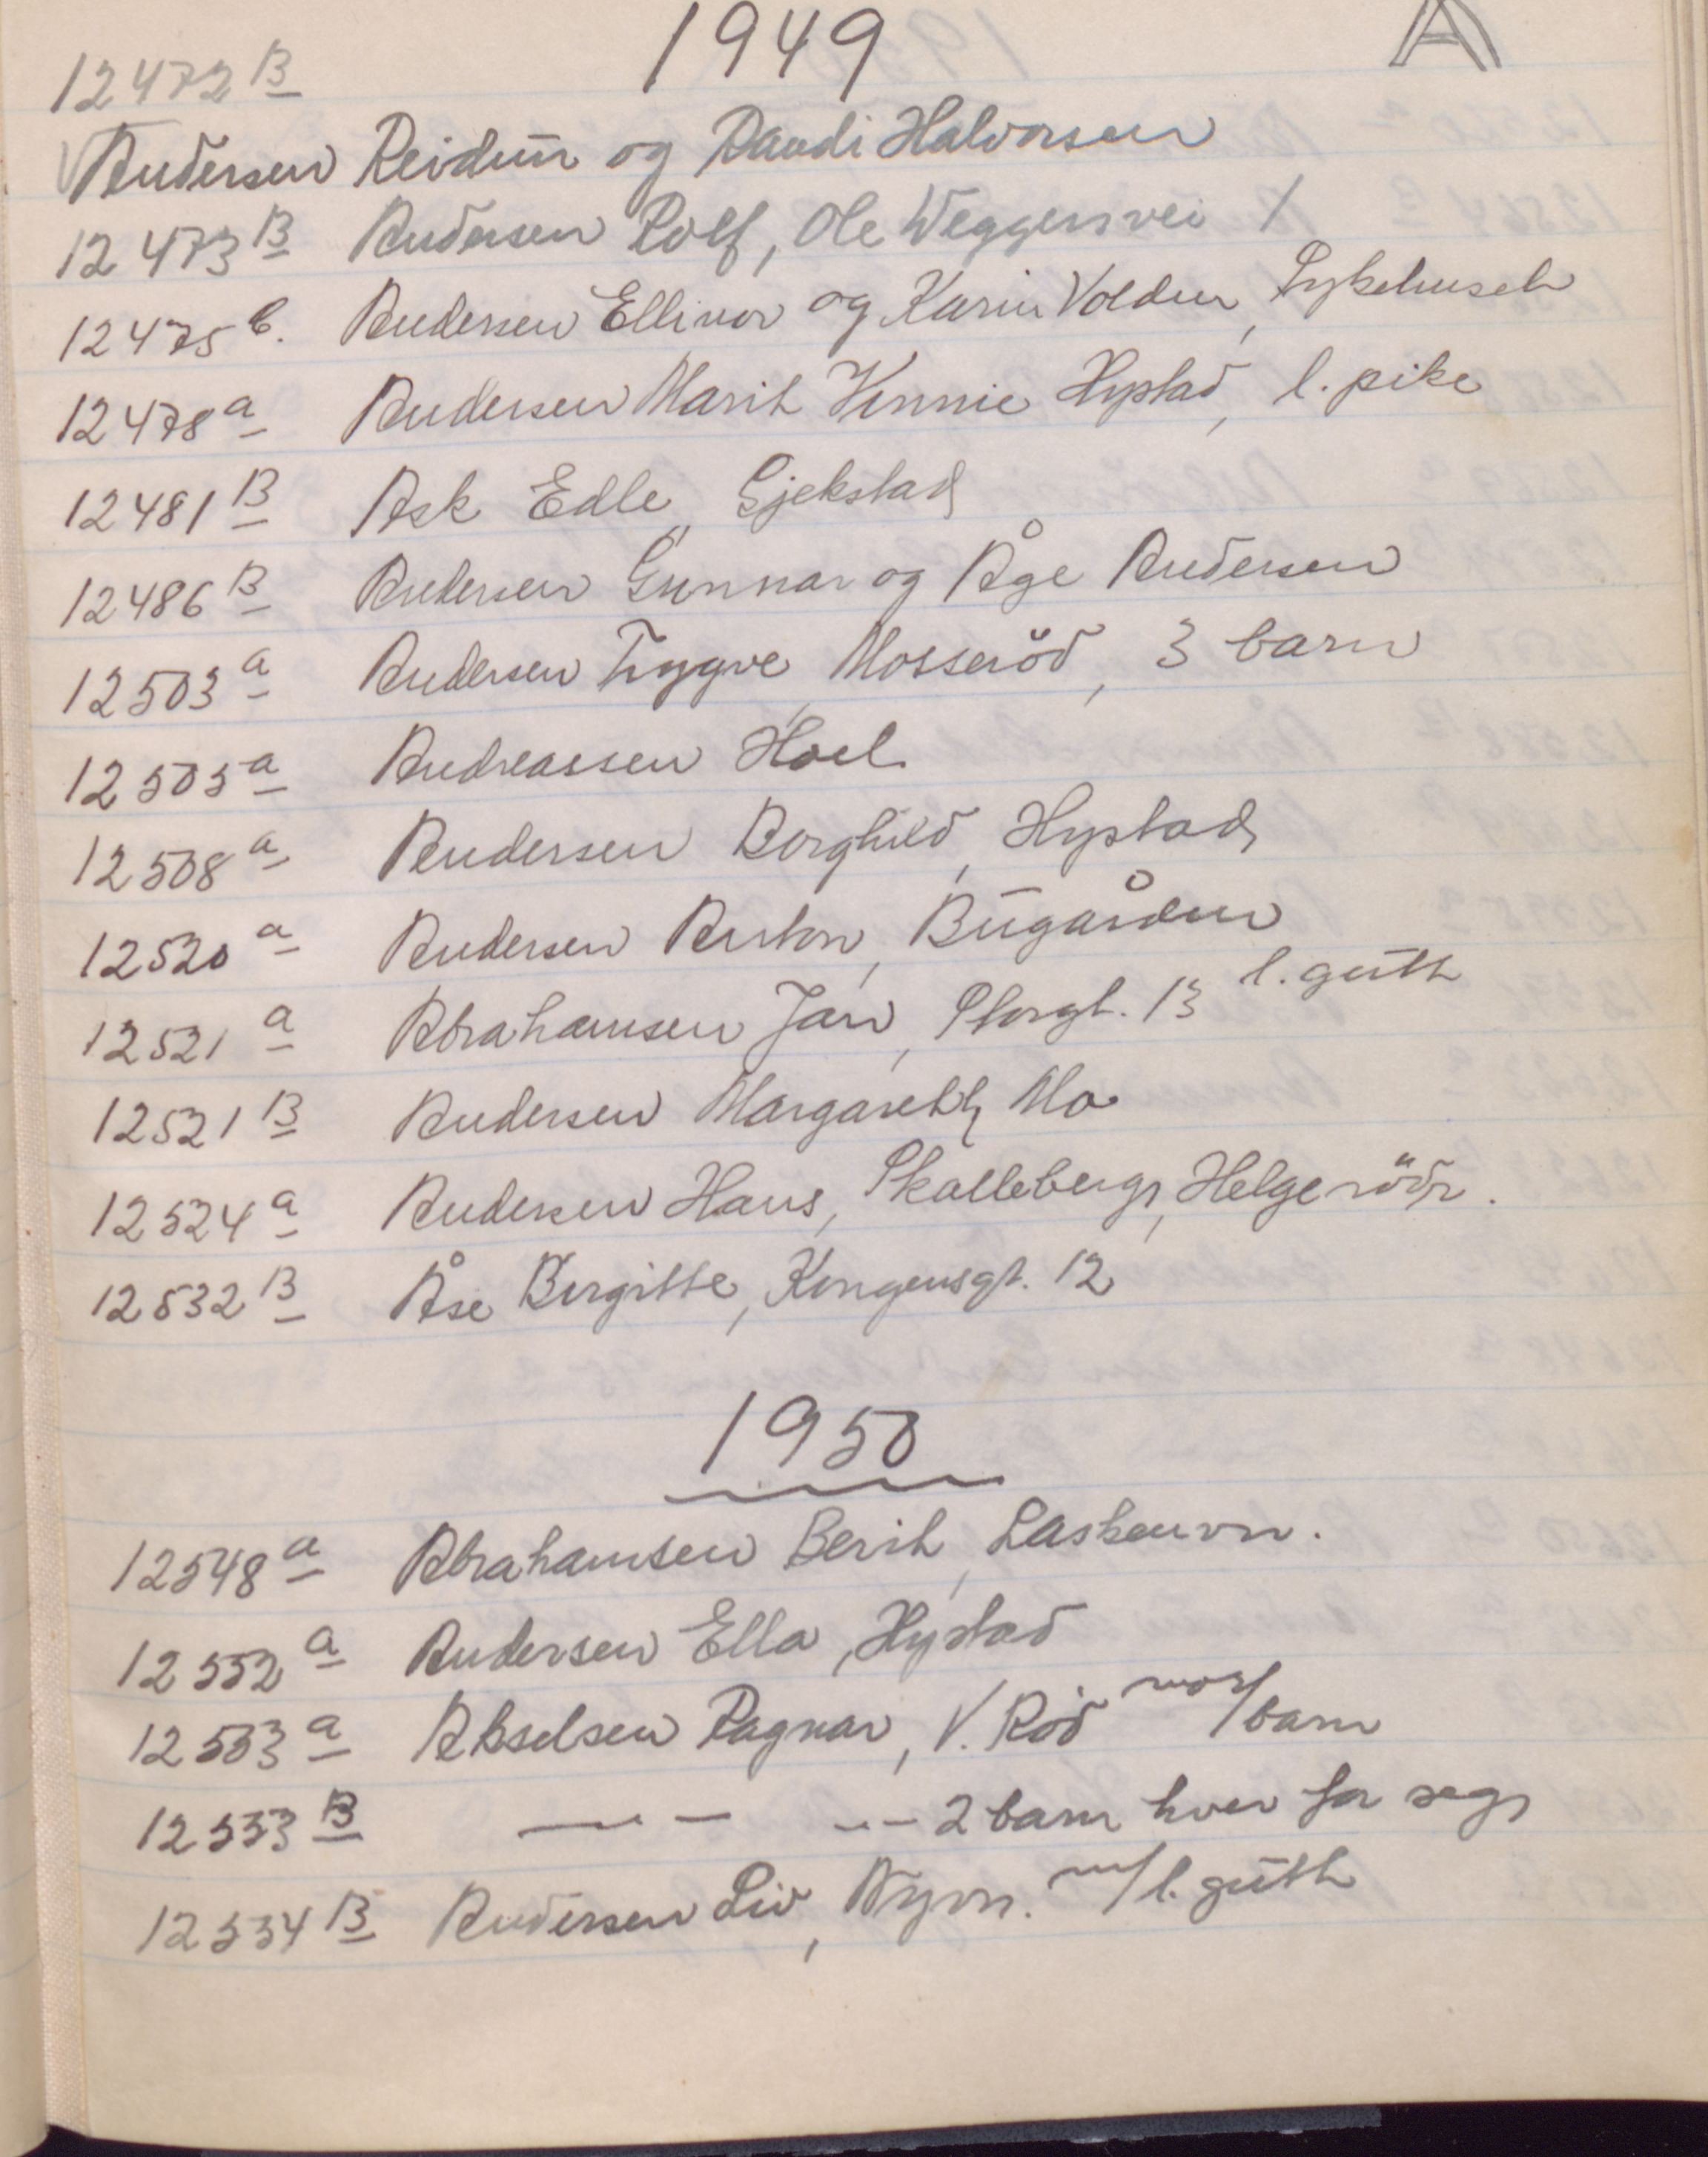 1949 A
12472 B
Andersen Reidun og Randi Halvorsen
12473 B Andersen Rolf, Ole Weggersvei 1
12475 b. Andersen Ellinor og Karin Volden, Sykehuset
12478 a Andersen Marit Vennie Hystad, l. pike
12481 B Ask Edle, Gjekstad
12486 B Andersen Gunnar og Åge Andersen
12503 a Andersen Trygve, Mosseröd, 3 barn
12505 a Andreassen Hoel
12508 a Andersen Borghild, Hystad
12520 a Andersen Anton, Bugården
12521 a Abrahamsen Jan, Storgt. 13 l. gutt
12521 B Andersen Margareth, Mo
12524 a Andersen Hans, Skalleberg, Helgerödr.
12532 B Åse Birgitte, Kongensgt. 12
1950
12548 a Abrahamsen Berit, Laskenvn.
12552 a Andersen Ella, Hystad
12553 a Akselsen Ragnar, V. Rød mor/barn
12553 B — - -- 2 barn hver for seg
12554 B Andersen Liv, Nyvn. m/l. gutt